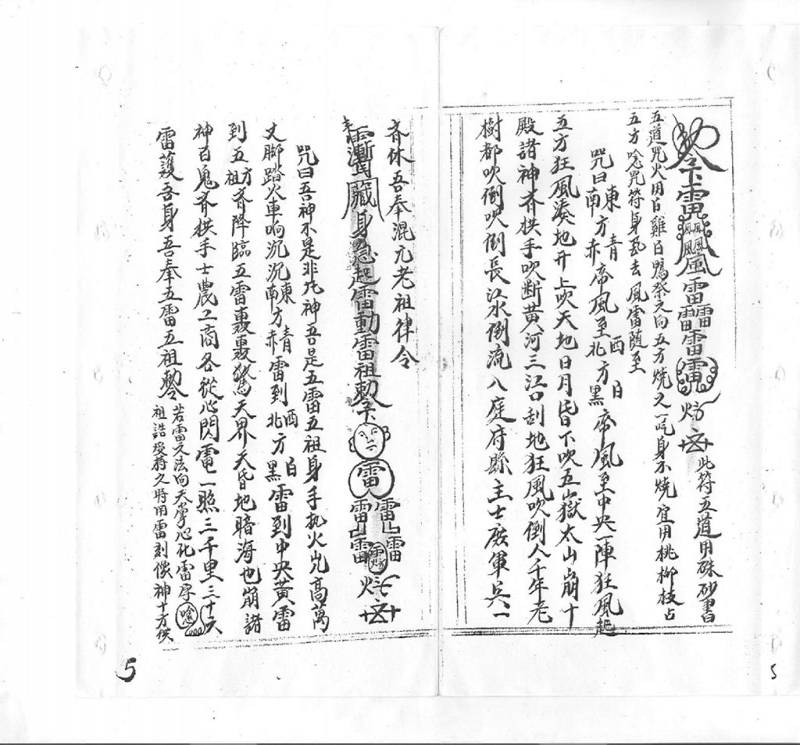 敕令雷雷雷雷雷
此符五道用硃砂書
五道咒火用白雞白鴨祭之向五方燒之一吒身不燒宜用桃柳枝占
五方唸咒符身丟去風雷隨至
咒曰東方青帝風至西方白帝風至南方赤帝風至北方黑帝風至中央一陣狂風起
五方狂風湊地升上吹天地日月昏下吹五嶽太山崩十
殿諸神齊拱手吹斷黃河三江口刮地狂風吹倒人千年老
樹都吹倒吹倒長江水倒流八庭府縣主士庶軍兵一
齊休吾奉混元老祖律令
藏身急起雷動雷祖敕令雷雷雷雷雷
咒曰吾神不是非凡神吾是五雷五祖身手執火光高萬
丈腳踏火車响沉沉東方青雷到西方白雷到南方赤雷到北方黑雷到中央黃雷
到五方五祖齊降臨五雷轟轟驚天界天昏地暗海也崩諸
神百鬼齊拱手士農工商各從心閃電一照三千里三十六
雷護吾身吾奉五雷五祖敕令
若雷火法向天掌心化雷字
祖誥發蔣之將用雷刻儐神十方佚
5
5